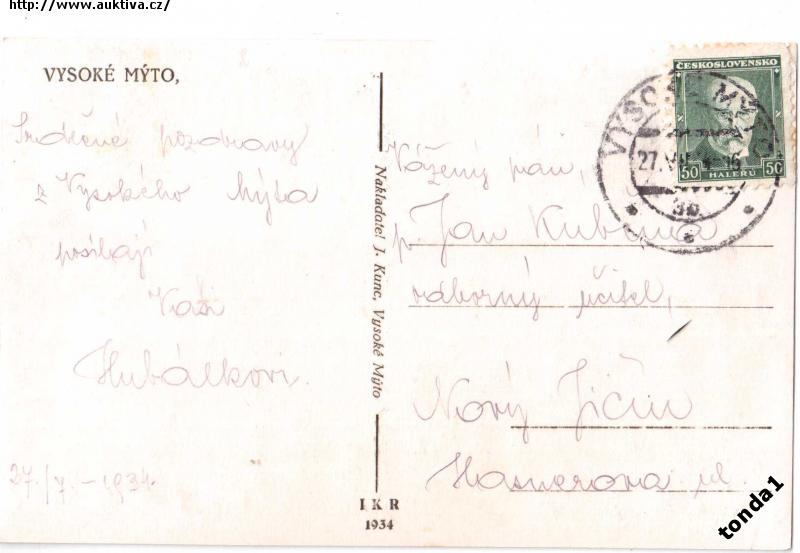 http://www.auktiva.cz/
VYSOKÉ MÝTO,
Srdečné pozdravy
z Vysokého Mýta
posílají
Vaši
Hubálkovi.
27./7.-1934.
Nakladatel J. Kunc, Vysoké Mýto
I K R
1934
ČESKOSLOVENSKO
50 50
HALÉŘŮ
VYSOKÉ MÝTO
27.
3b
Vážený pán,
p. Jan
odborný učitel,
Nový Jičín
ul.
tonda1